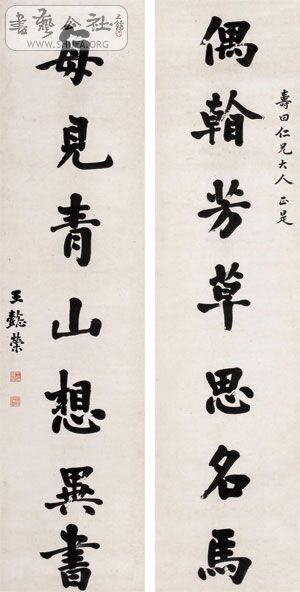 壽田仁兄大人正是
偶翰芳草思名馬
每見青山想異書
王懿榮
書藝公社
WWW.SHUFA.ORG